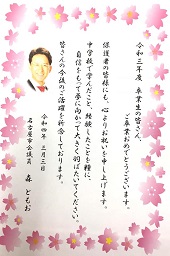 令和三年度、卒業生の皆さん、
ご卒業おめでとうございます。
保護者の皆様にも、心よりお祝いを申し上げます。
中学校で学んだこと、経験したことを糧に、
自信をもって夢に向かって大きく羽ばたいてください。
皆さんの今後のご活躍を祈念しております。
令和四年 三月三日
名古屋市会議員 森 ともお